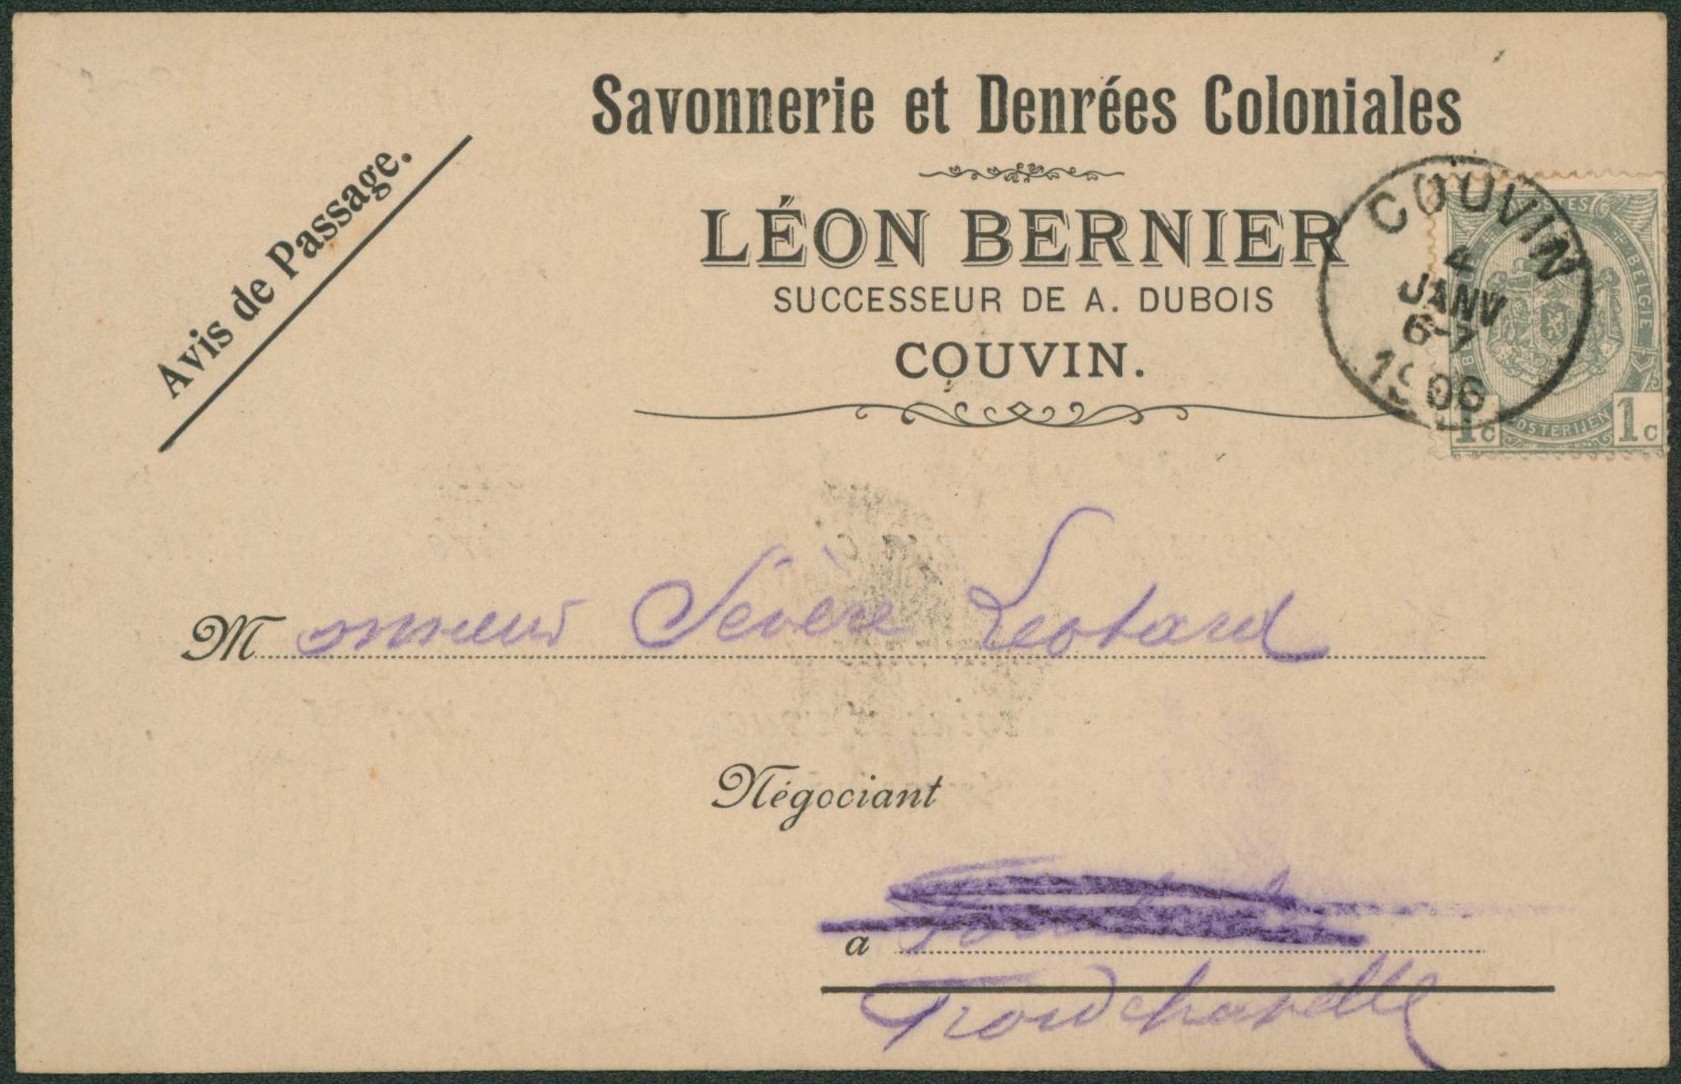 Savonnerie et Denrées Coloniales
Avis de Passage.
LÉON BERNIER
SUCCESSEUR DE A. DUBOIS
COUVIN.
COUVIN
4
JANV
6-7
1906
BELGIE
POSTERIJEN
1c 1c
Monsieur Sévère Leotard
Négociant
a
Froidchapelle